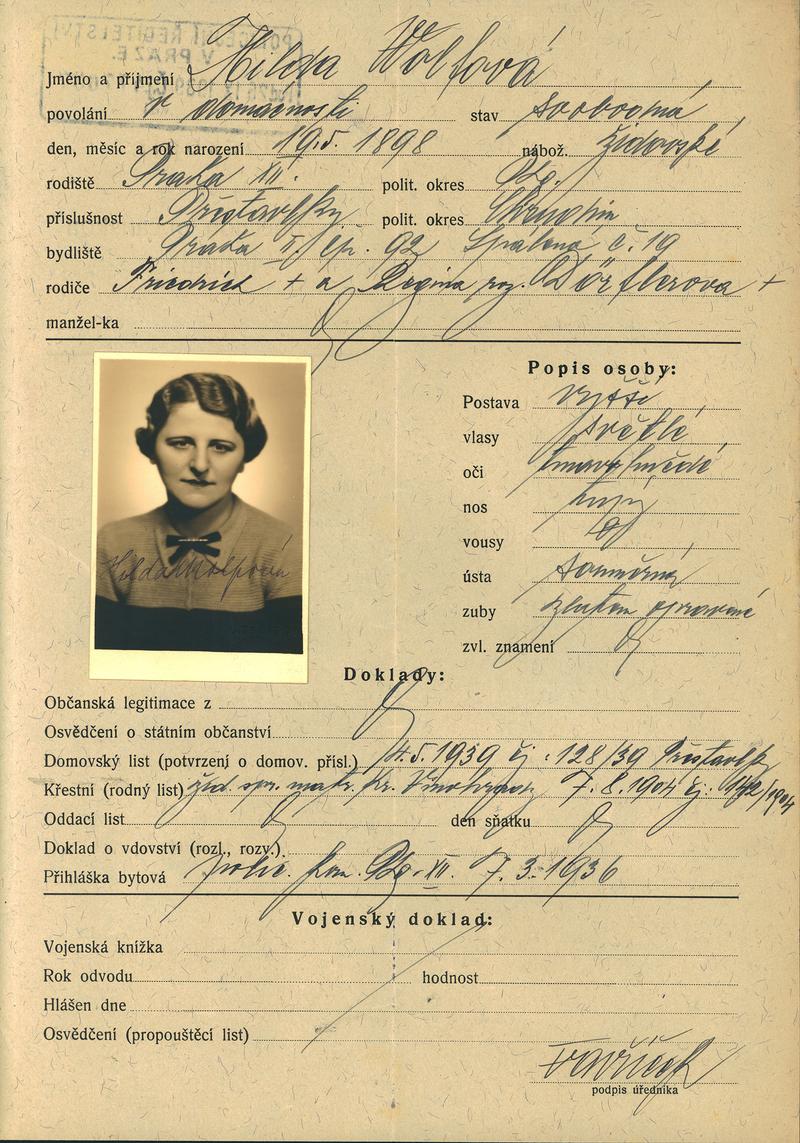 Jméno a příjmení Hilda Wolfová
povolání v domácnosti stav svobodná
den, měsíc a rok narození 19.5. 1898 nábož. židovské
rodiště Praha XII. polit. okres
příslušnost Přestavlky polit. okres Chrudim
bydliště Praha II, čp. 92 Spálená č. 19
rodiče Friedrich + a Regina roz. Dörflerova +
manžel-ka
Popis osoby:
Postava vyšší
vlasy světlé
oči tmavohnědé
nos
vousy
ústa souměrná
zuby zlatem opravené
zvl. znamení
Hilda Wolfová
Doklady:
Občanská legitimace z
Osvědčení o státním občanství
Domovský list (potvrzení o domov. přísl.) 4.5.1939 čj. 128/39 Přestavlky
Křestní (rodný list) žid. spr. matr. Kr. Vinohrady 7.8.1904 čj. 142/1904
Oddací list den sňatku
Doklad o vdovství (rozl., rozv.)
Přihláška bytová polic. kom. XII. 7.3.1936
Vojenský doklad:
Vojenská knížka
Rok odvodu hodnost
Hlášen dne
Osvědčení (propouštěcí list)
podpis úředníka